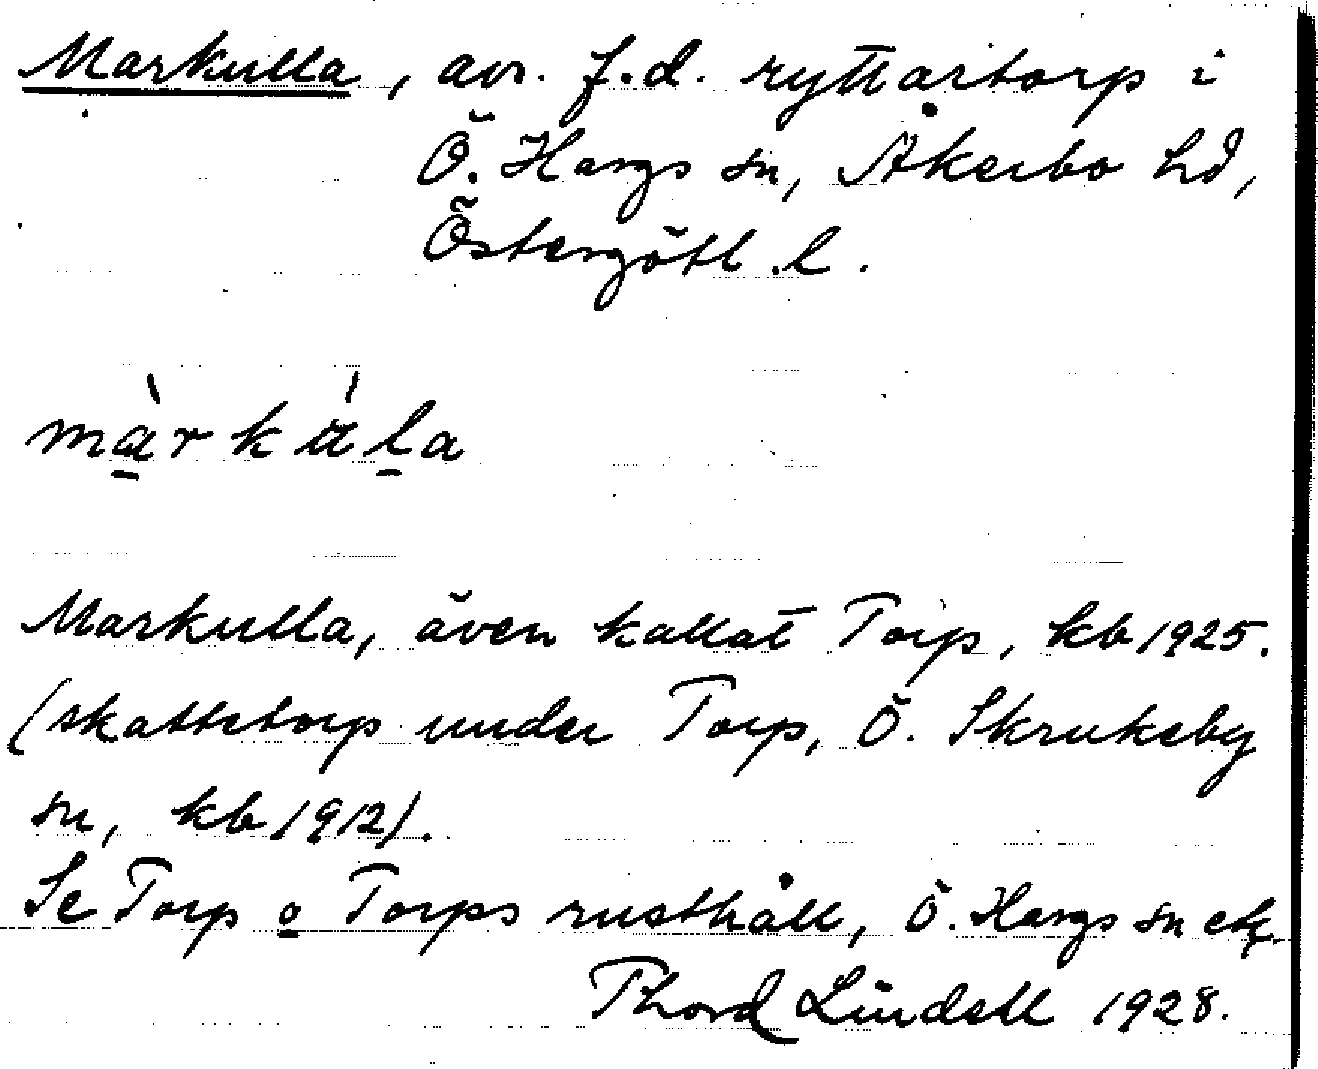 Markulla, avs. f.d. ryttartorp i
Ö. Hargs sn, Åkerbo hd,
Östergötl. l.
màrkúla
Markulla, även kallat Torp, kb 1925.
(skattetorp under Torp, Ö. Skrukeby
sn, kb 1912).
Se Torp o Torps rusthåll, Ö. Hargs sn etc
Thord Lindell 1928.